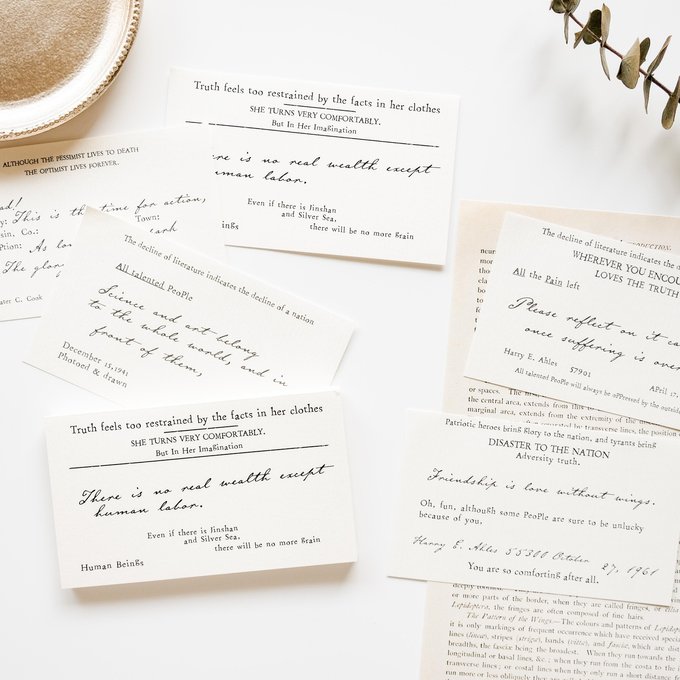 Truth feels too restrained by the facts in her clothes
SHE TURNS VERY COMFORTABLY.
But In Her Imagination
re is no real wealth except
uman labor.
Even if there is Jinshan
and Silver Sea,
there will be no more grain
ngs
ALTHOUGH THE PESSIMIST LIVES TO DEATH
THE OPTIMIST LIVES FOREVER.
ad!
This is the time for action,
sin, Co.: Town:
ption: As lo earh
The glory
ater C. Cook
The decline of literature indicates the decline of a nation
All talented PeoPle
Science and art belong
to the whole world, and in
front of them,
December 15,1941
Photoed & drawn
Truth feels too restrained by the facts in her clothes
SHE TURNS VERY COMFORTABLY.
But In Her Imagination
There is no real wealth except
human labor.
Even if there is Jinshan
and Silver Sea,
there will be no more grain
Human Beings
The decline of literature indicates the d
WHEREVER YOU ENCOU
LOVES THE TRUTH
All the Pain left
Please reflect on it ca
once suffering is over
Harry E. Ahles 57901 April 27,
All talented PeoPle will always be oPPressed by the outside
Patriotic heroes bring glory to the nation, and tyrants bring
DISASTER TO THE NATION
Adversity truth.
Friendship is love without wings.
Oh, fun, although some PeoPle are sure to be unlucky
because of you.
Harry E. Ahles 55300 October 27, 1961
You are so comforting after all.
ODUCTION.
neur
or spaces. The
the central area, extends from this to
marginal area, extends from the extremity of the
deeply toothed.
or more parts of the border, when they are called fringes, or
Lepidoptera, the fringes are often composed of fine hairs.
The Pattern of the Wings.—The colours and patterns of Lepido
it is only markings of frequent occurrence which have received special
lines (lineæ), stripes (strigæ), bands (vittæ), and fasciæ, which are dist
breadths, the fasciæ being the broadest. When they run towards the
longitudinal or basal lines, &c.; when they run from the costa to the i
transverse lines; or costal lines when they only run a short distanc
run more or less obliquely they are call